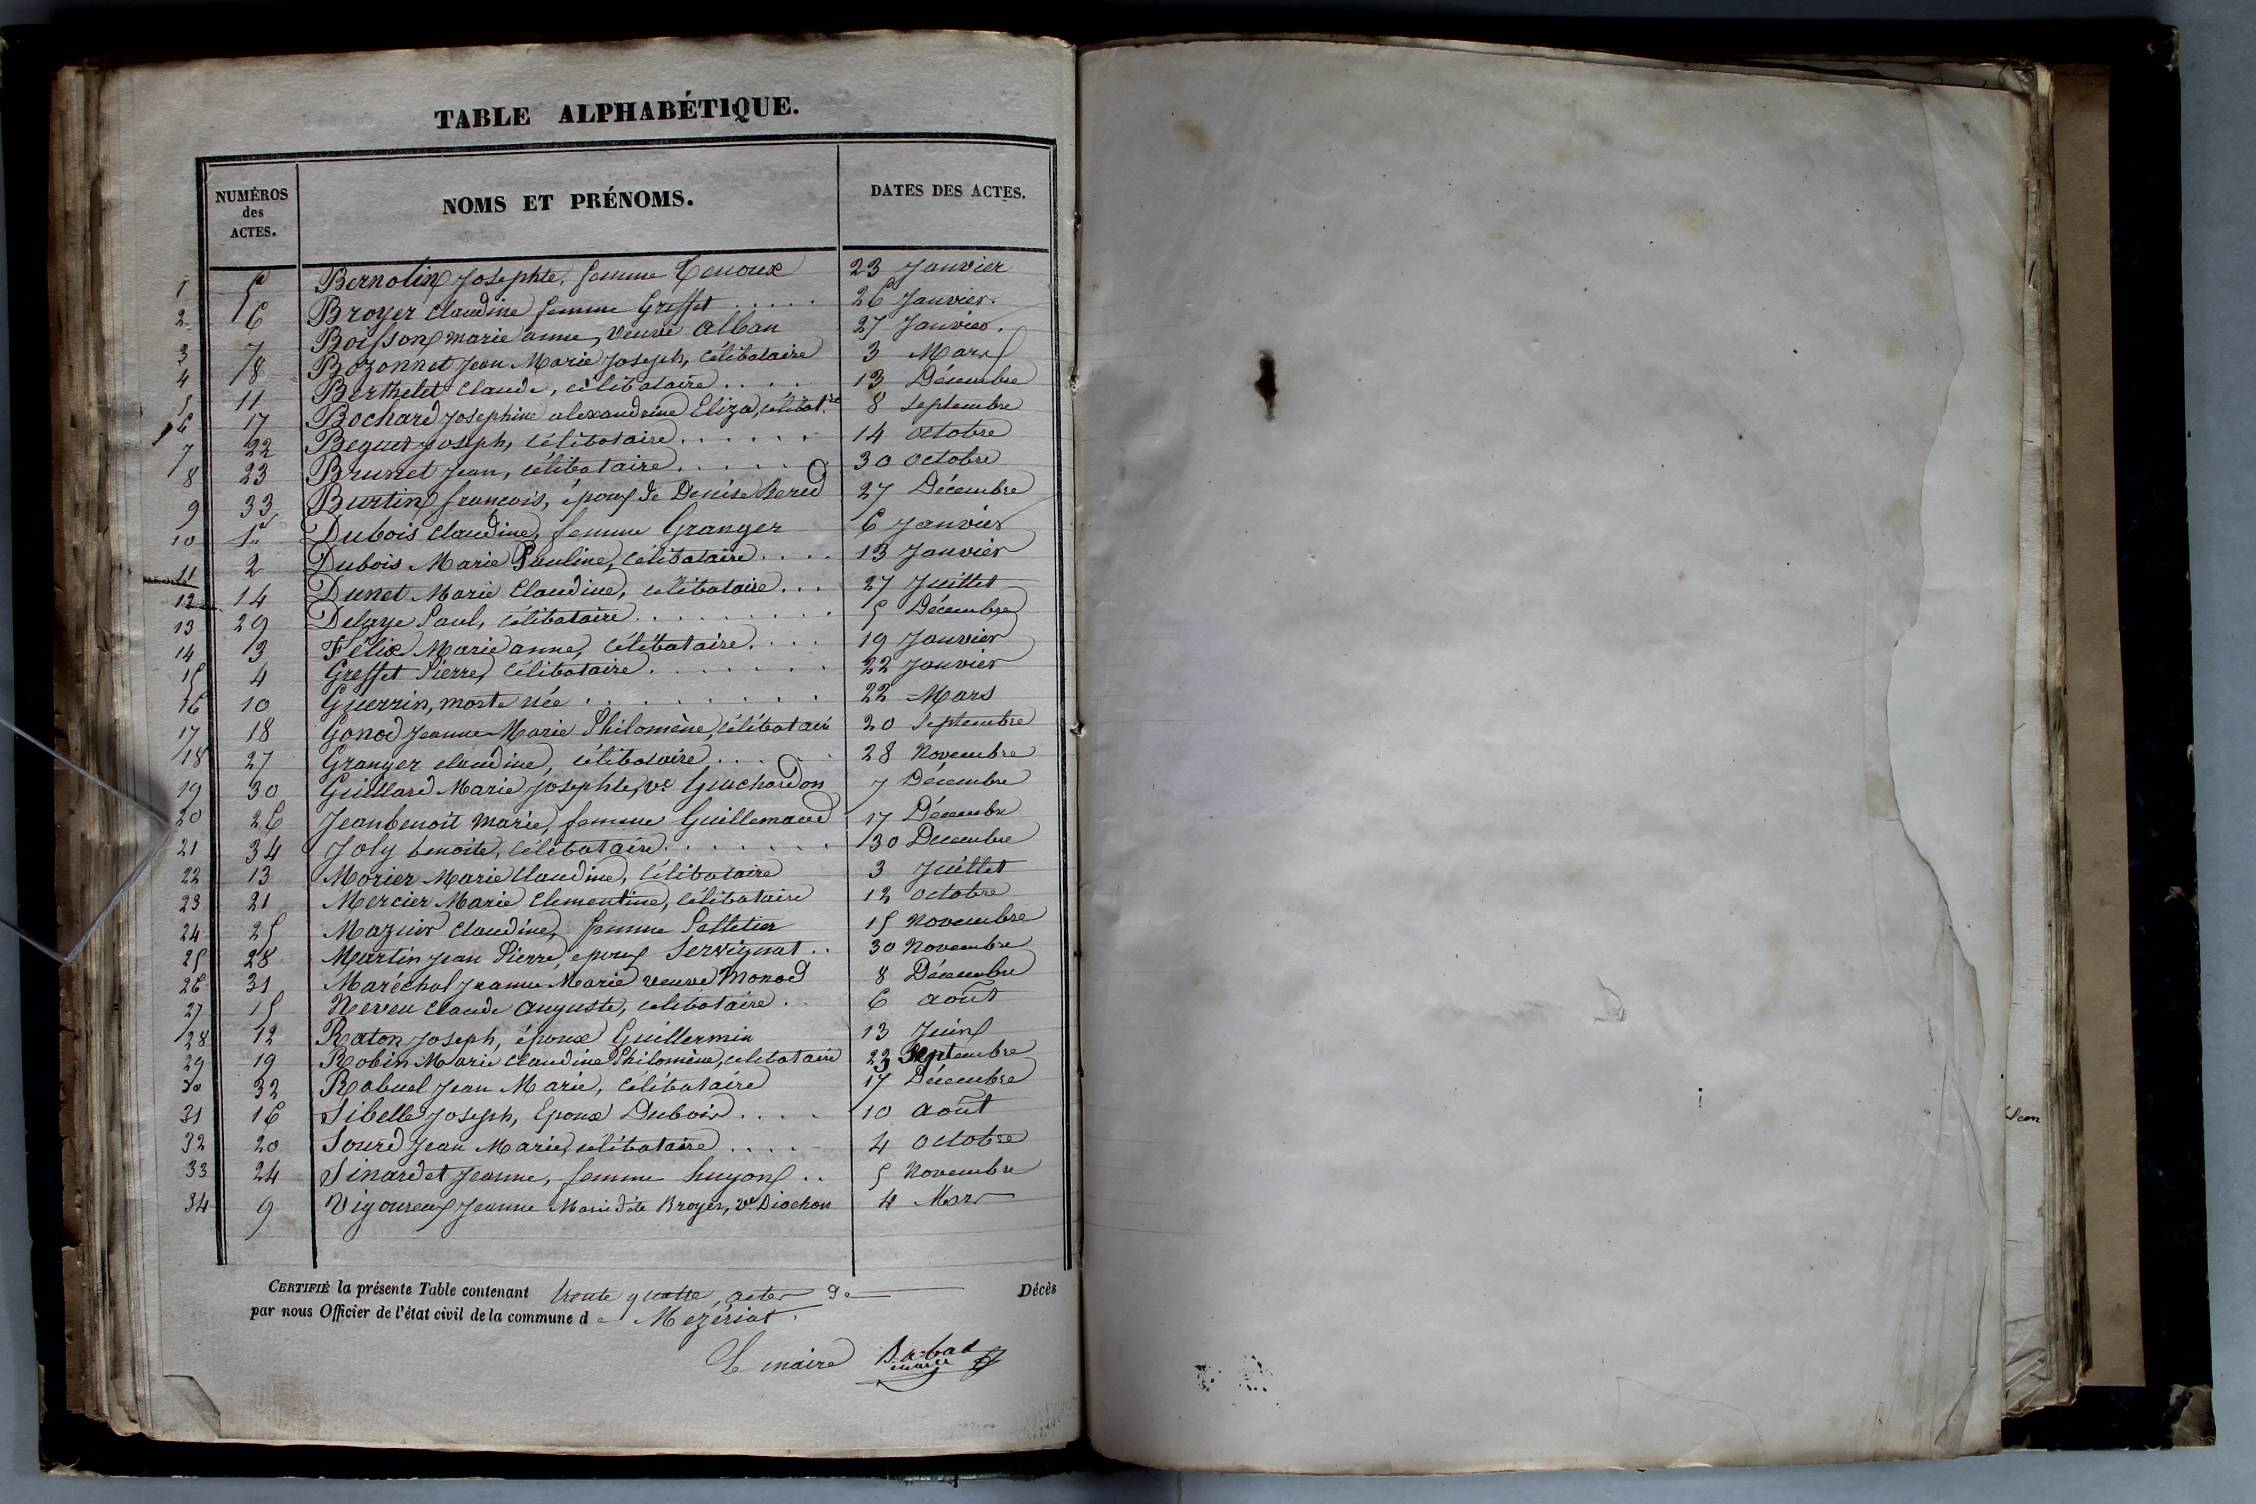 TABLE ALPHABÉTIQUE.
NUMÉROS des ACTES.
NOMS ET PRÉNOMS.
DATES DES ACTES.
1 5 Bernolin Josephte, femme Tenoux 23 Janvier
2 6 Broyer Claudine femme Greffet ..... 26 Janvier.
3 7 Boisson Marie anne, Veuve Alban 27 Janvier.
4 8 Bozonnet Jean Marie Joseph, célibataire 3 Mars
5 11 Berthelet Claude, célibataire .... 13 Décembre
6 17 Bochard Josephine alexandrine Eliza, célibat.re 8 Septembre
7 22 Beguet Joseph, célibataire ...... 14 Octobre
8 23 Brunet Jean, célibataire ...... 30 Octobre
9 33 Burtin françois, époux de Denise 27 Décembre
10 1er Dubois Claudine, femme Granger 6 Janvier
11 2 Dubois Marie Pauline, célibataire .... 13 Janvier
12 14 Dunet Marie Claudine, célibataire ... 27 Juillet
13 29 Delaye Paul, célibataire ........ 5 Décembre
14 3 Félix Marie anne, célibataire .... 19 Janvier
15 4 Greffet Pierre, célibataire ....... 22 Janvier
16 10 Guerrin, morte née ........ 22 Mars
17 18 Gonod Jeanne Marie Philomène, célibataire 20 Septembre
18 27 Granger claudine, célibataire ..... 28 Novembre
19 30 Guillard Marie Josephte, ve Guichardon 7 Décembre
20 26 Jeanbenoit Marie, femme Guillemaud 17 Décembre
21 34 Joly benoite, célibataire ....... 30 Decembre
22 13 Morier Marie Claudine, célibataire 3 Juillet
23 21 Mercier Marie Clementine, célibataire 12 Octobre
24 25 Mazuir Claudine, femme Pelletier 15 Novembre
25 28 Martin Jean Pierre, époux Servignat .. 30 Novembre
26 31 Maréchal Jeanne Marie veuve Monod 8 Décembre
27 15 Neveu Claude Auguste, célibataire .. 6 août
28 12 Raton Joseph, époux Guillermin 13 Juin
29 19 Robin Marie Claudine Philomène, célibataire 23 Septembre
30 32 Rabuel Jean Marie, célibataire 17 Décembre
31 16 Sibelle Joseph, Epoux Dubois .... 10 août
32 20 Sourd Jean Marie, célibataire .... 4 Octobre
33 24 Sinardet Jeanne, femme Guyon .. 5 Novembre
34 9 Vigoureux Jeanne Marie dite Broyer, Ve Diochon 4 Mars
CERTIFIÉ la présente Table contenant trente quatre actes de Décès
par nous Officier de l'état civil de la commune de Mézériat.
Le maire
maire